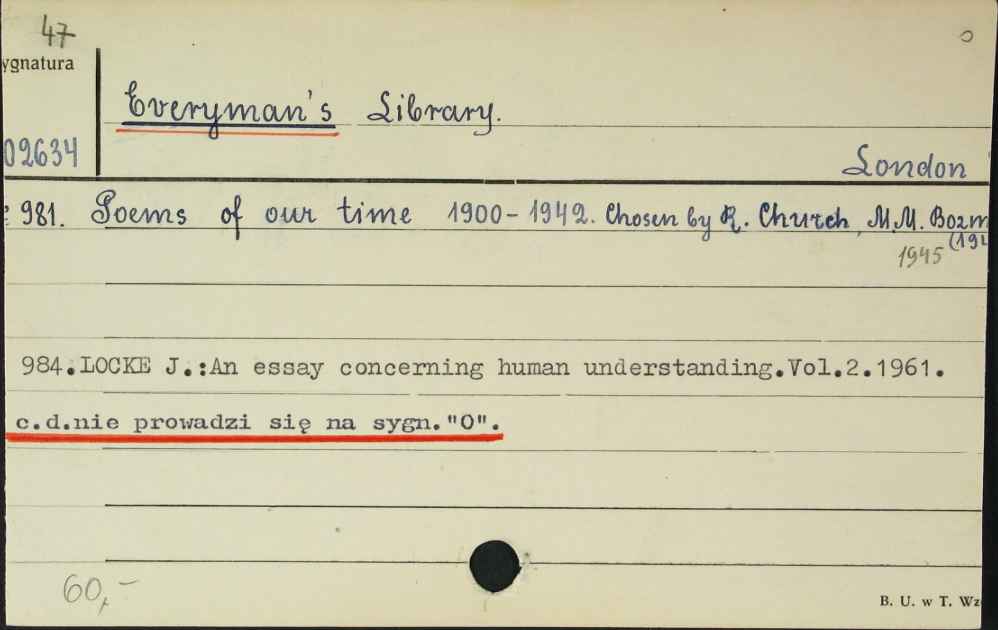 47
ygnatura
Everyman's Library.
02634
London
981. Poems of our time 1900-1942. Chosen by R. Church, M.M. Bozm
1945 (194
984.LOCKE J.:An essay concerning human understanding.Vol.2.1961.
c.d.nie prowadzi się na sygn."O".
60,-
B. U. w T. Wz